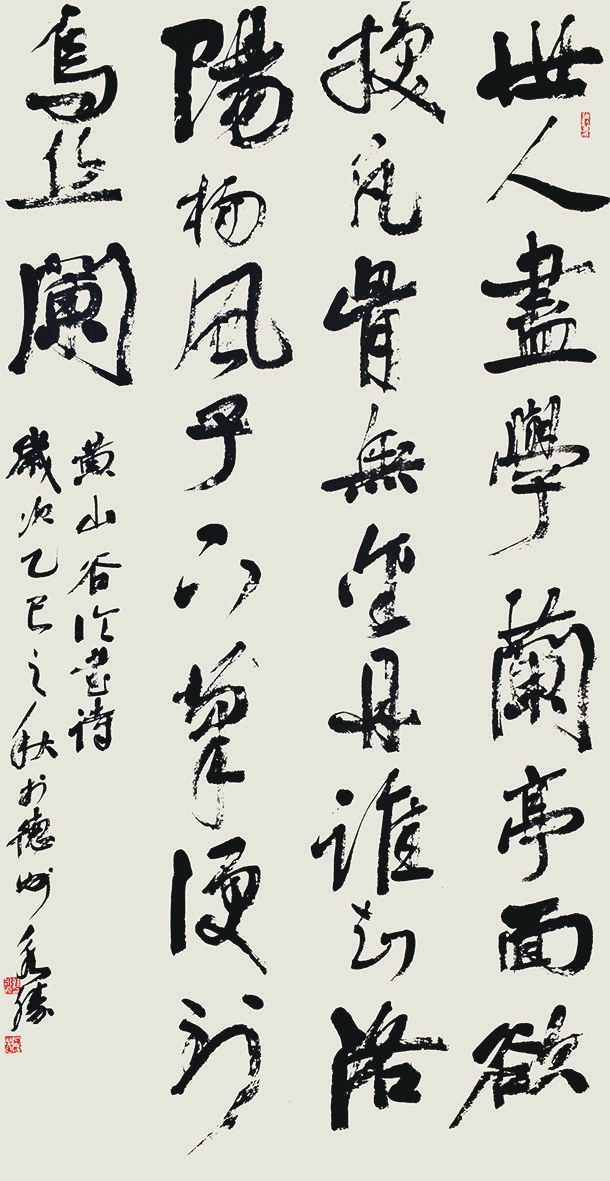 世人盡學蘭亭面欲
換凡骨無金丹誰知洛
陽楊風子下筆便到
烏丝闌
黄山谷论書诗
歲次乙巳之秋於德州 勝